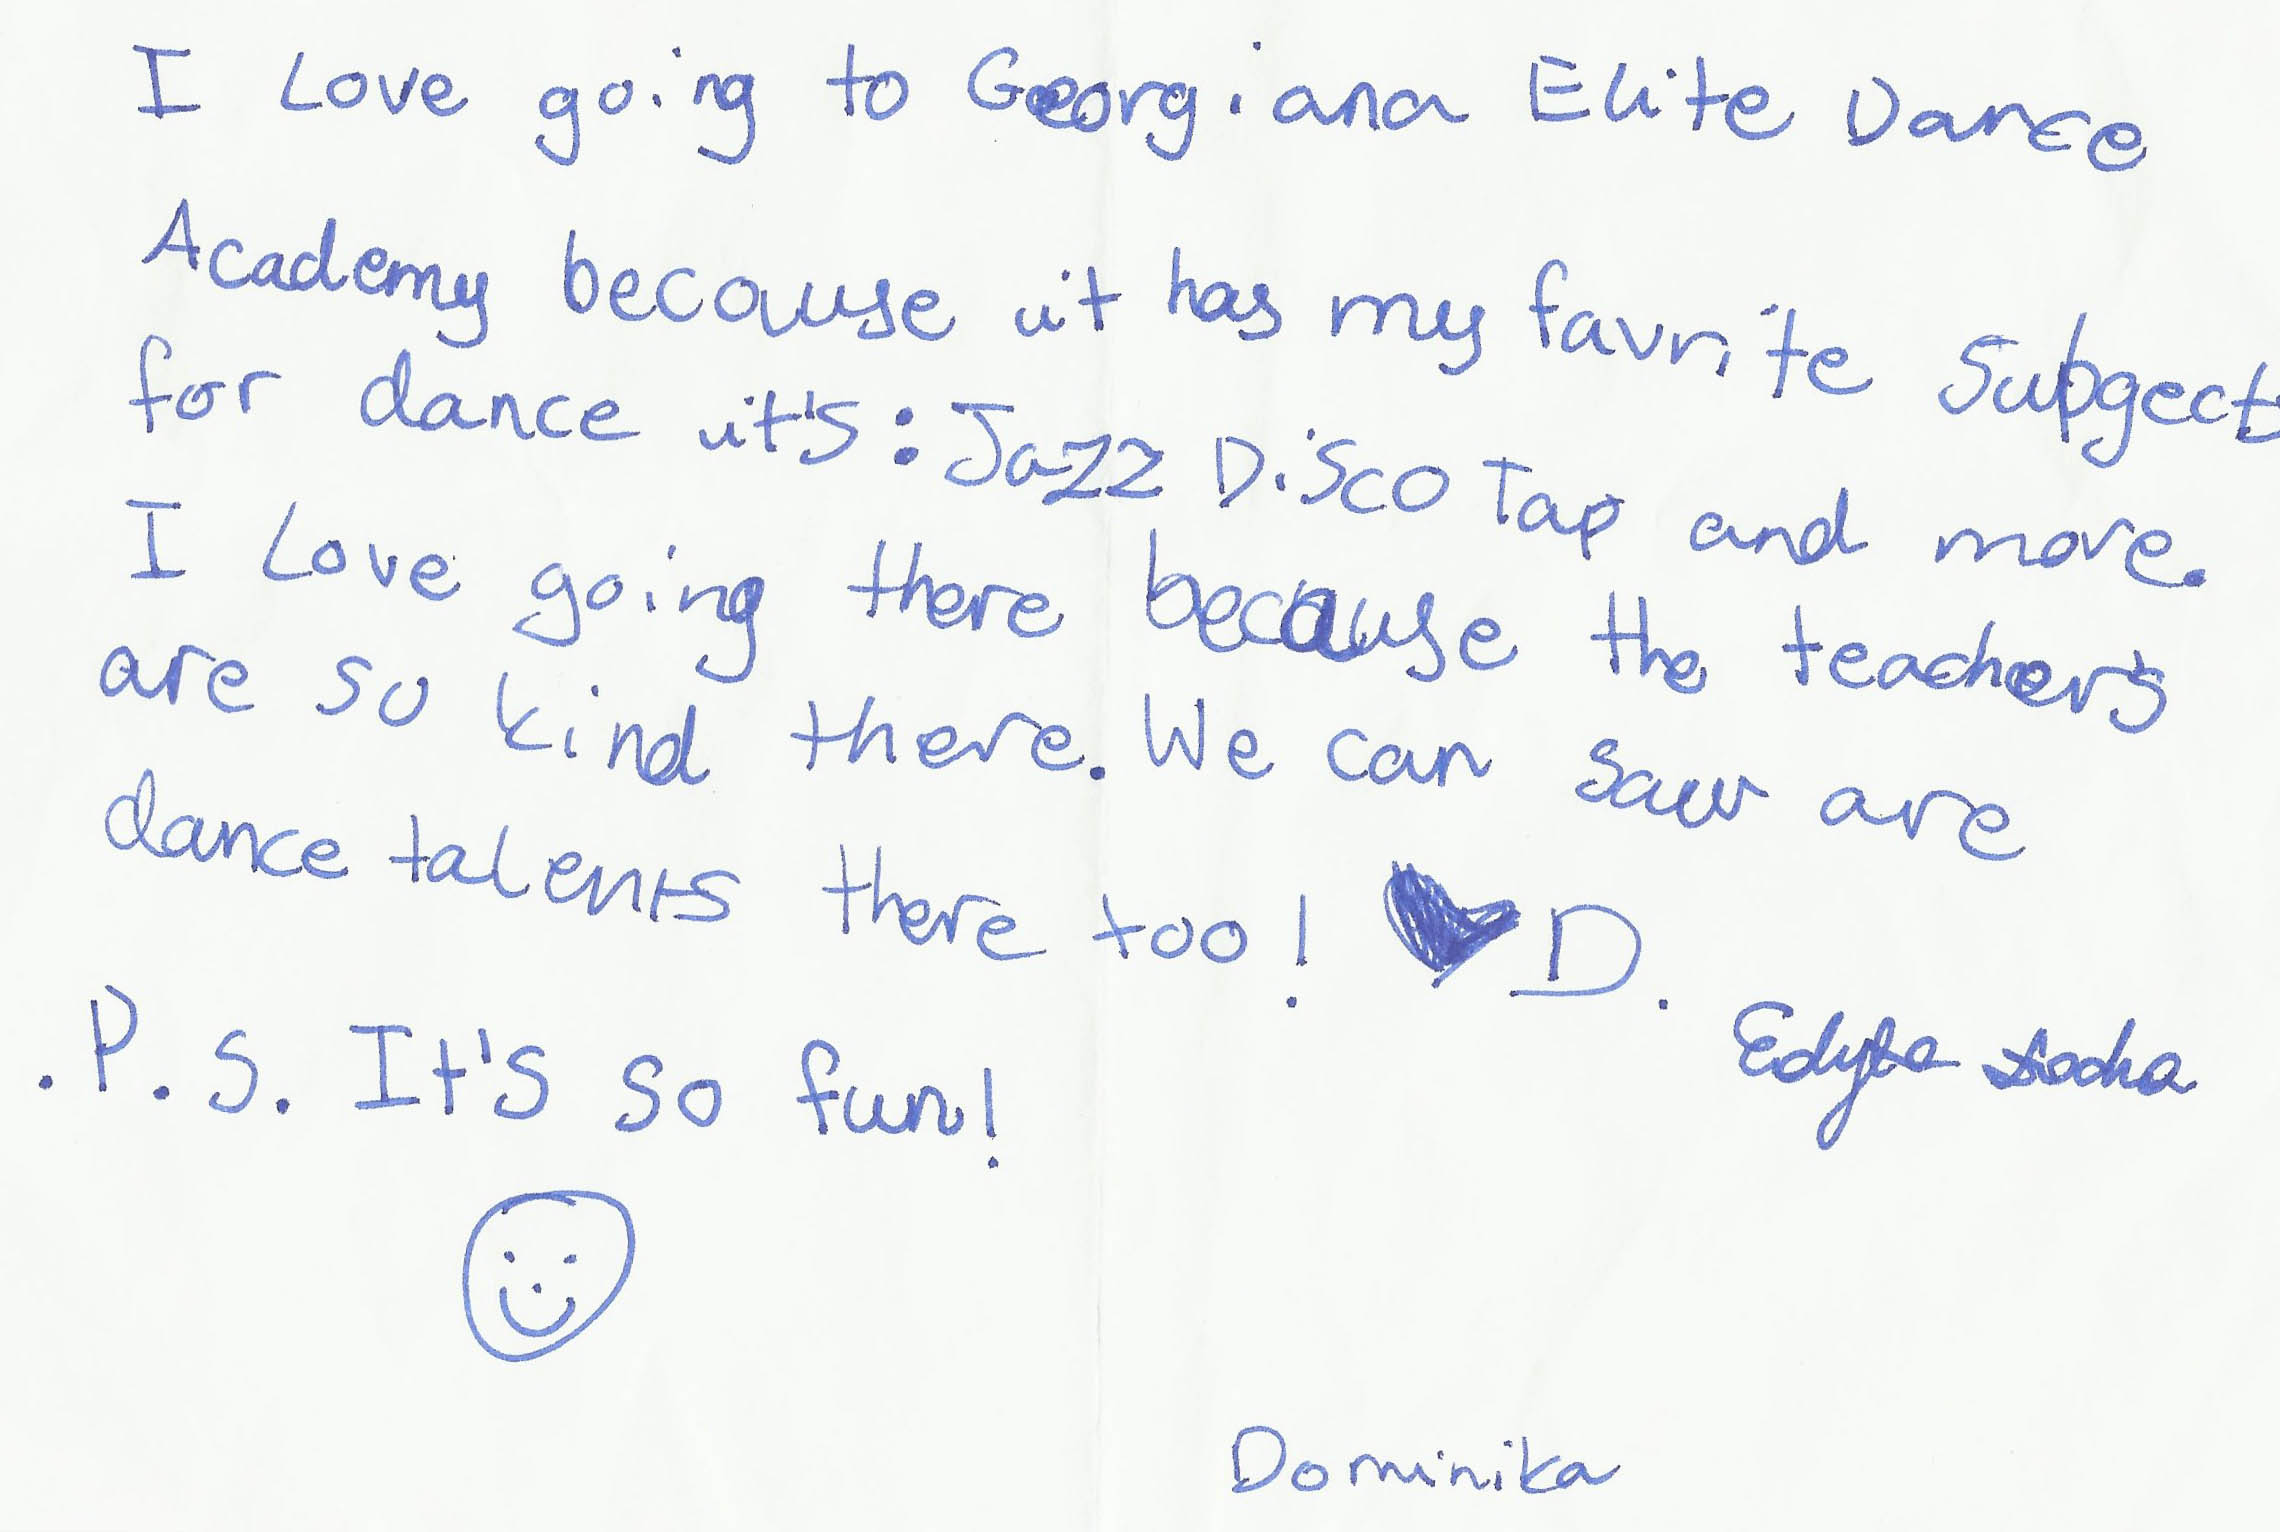 I Love going to Georgiana Elite Dance
Academy because it has my favrite Subgect
for dance it's: Jazz Disco Tap and more.
I Love going there because the teacher's
are so kind there. We can saw are
dance talents there too! ♥ D.
Edyta
.P.S. It's so fun!
Dominika